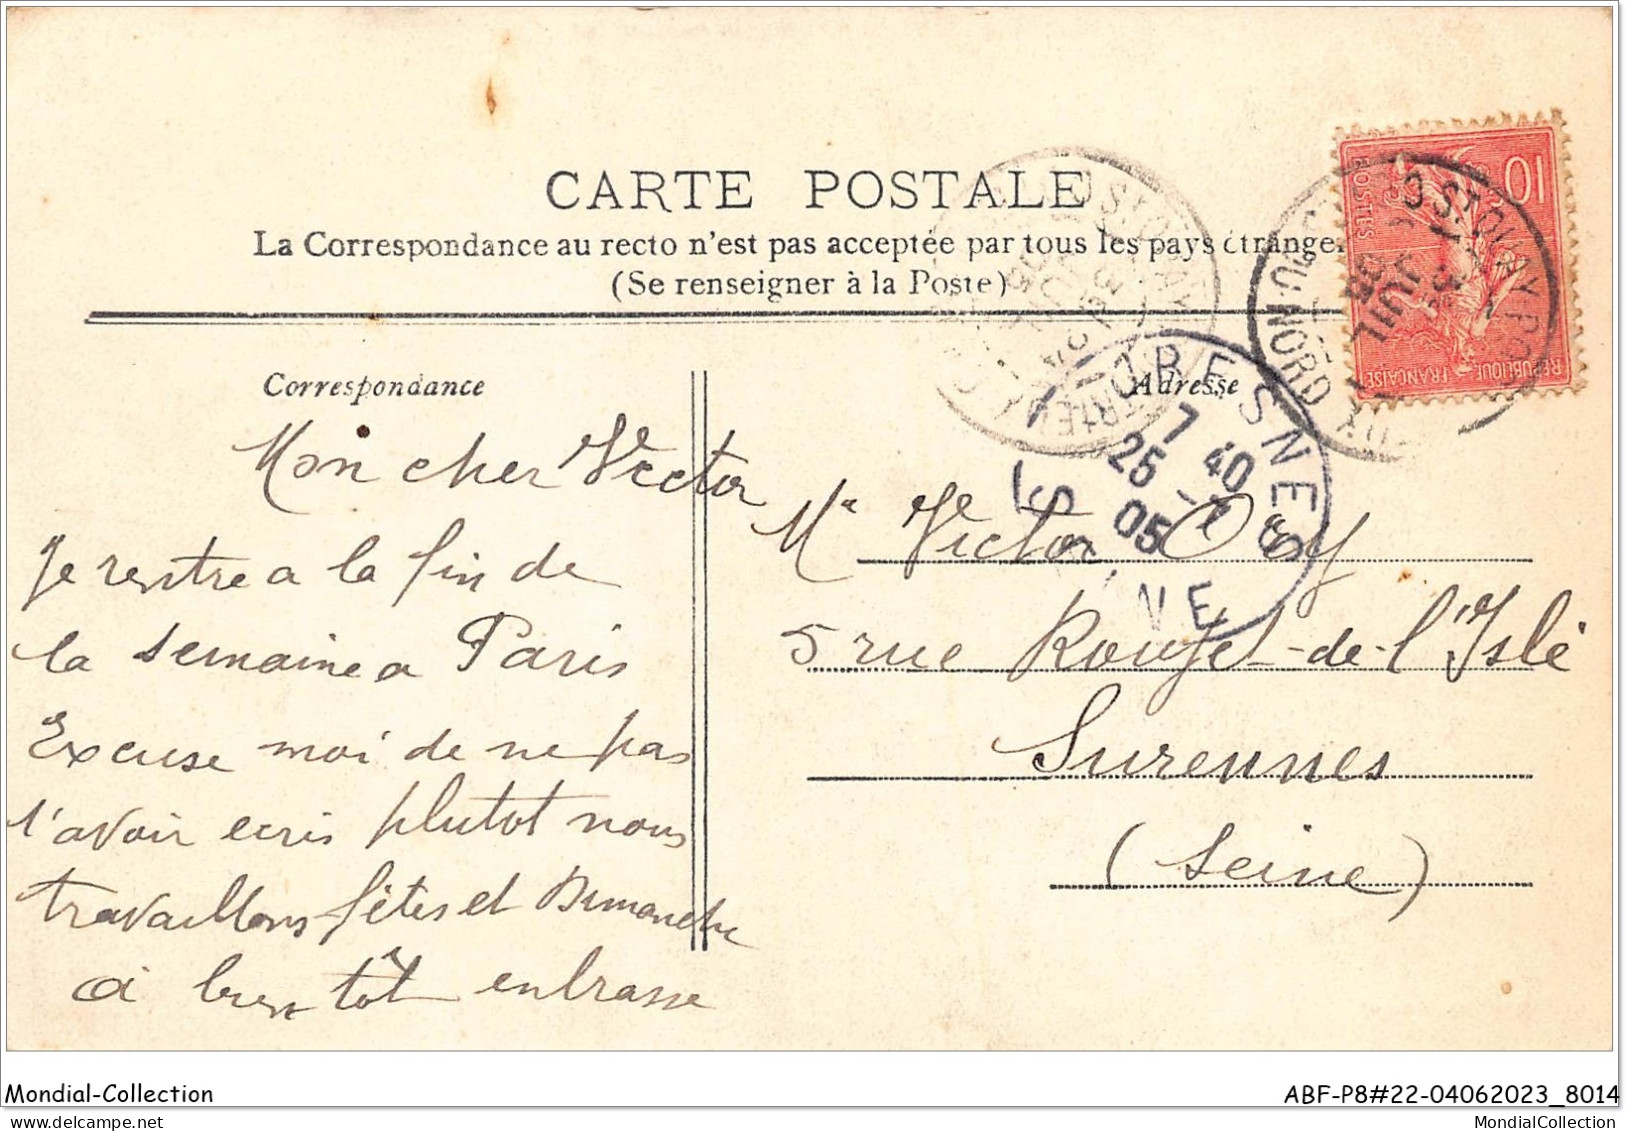 CARTE POSTALE
La Correspondance au recto n'est pas acceptée par tous les pays étranger
(Se renseigner à la Poste)
Correspondance
Mon cher Victor
Je rentre a la fin de
la semaine a Paris
Excuse moi de ne pas
t'avoir ecris plutot nous
travaillons fêtes et Dimanche
a bientôt enbrasse
Adresse
Mr Victor Ory
5 rue Rouget-de-l'Isle
Surennes
(Seine)
10
POSTES
REPUBLIQUE FRANÇAISE
JUIL
DU NORD
SURESNES
7 40
25 -7
05
SEINE
Mondial-Collection
ABF-P8#22-04062023_8014
MondialCollection